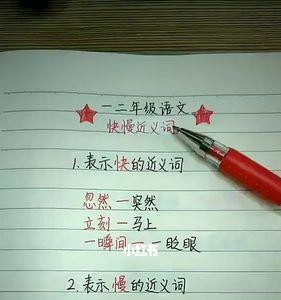 一二年级语文
快慢近义词
1.表示快的近义词
忽然—突然
立刻—马上
一瞬间—一眨眼
小红书
2.表示慢的近义词